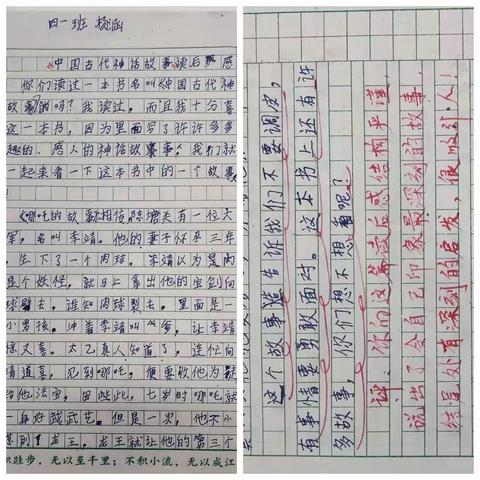 四一班 杨涵
《中国古代神话故事》读后感
你们读过一本书名叫《中国古代神
故事》的吗?我读过,而且我十分喜
这一本书,因为里面写了许许多多
趣的、感人的神话故事,我们就
一起来看一下这本书中的一个故事
《哪吒的故事》相传,陈塘关有一位大
军,名叫李靖。他的妻子怀孕三年
生下了一个肉球。李靖以为是
是个妖怪,就马上拿出他的宝剑向
球劈去,谁知肉球裂去。里面是一
小男孩。冲着李靖叫爸爸,让李靖
惊又喜。太乙真人知道了,连忙向
靖道喜,见到哪吒,便要收他为徒
给他法宝,因此,七岁时哪吒就
一身好武艺。但是一次,他不小
惹到了龙王,龙王就让他的第三个
积跬步,无以至千里;不积小流,无以成江
这个故事告诉我们不要调皮,
有事情要勇敢面对。这本书上还有许
多故事,你们想不想看呢?
评:你的这篇读后感结构严谨,
说出了令自己印象最深刻的故事,
结尾处有深刻的启发,很吸引人!